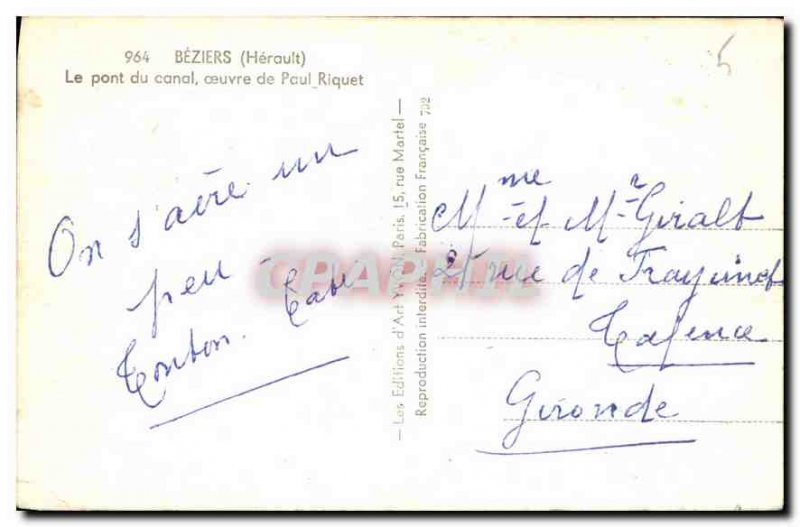 964 BÉZIERS (Hérault)
Le pont du canal, œuvre de Paul Riquet
On s'aère un
peu -
Tonton.
— Les Editions d'Art YVON, Paris, 15, rue Martel —
Reproduction interdite - Fabrication Française 702
Mme et Mr Giralt
rue de
Talence
Gironde
CPARPHIL